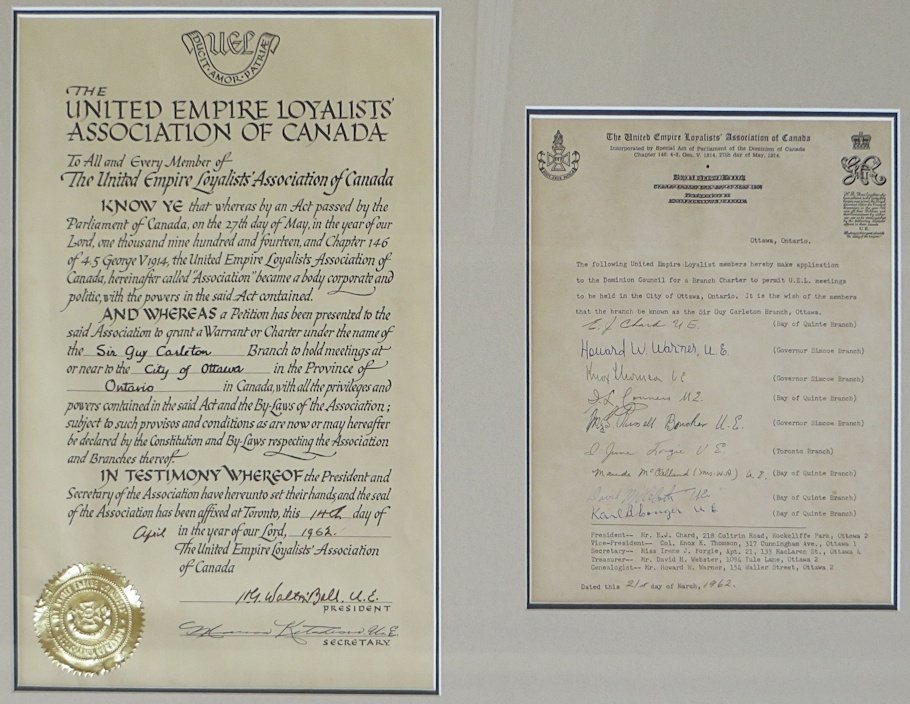 UEL
DUCIT·AMOR·PATRIÆ
THE
UNITED EMPIRE LOYALISTS'
ASSOCIATION OF CANADA
To All and Every Member of
The United Empire Loyalists' Association of Canada
KNOW YE that whereas by an Act passed by the
Parliament of Canada, on the 27th day of May, in the year of our
Lord, one thousand nine hundred and fourteen, and Chapter 146
of 4.5 George V 1914, the United Empire Loyalists Association of
Canada, hereinafter called "Association" became a body corporate and
politic, with the powers in the said Act contained.
AND WHEREAS a Petition has been presented to the
said Association to grant a Warrant or Charter under the name of
the Sir Guy Carleton Branch to hold meetings at
or near to the City of Ottawa in the Province of
Ontario in Canada, with all the privileges and
powers contained in the said Act and the By-Laws of the Association;
subject to such provisos and conditions as are now or may hereafter
be declared by the Constitution and By-Laws respecting the Association
and Branches thereof.
IN TESTIMONY WHEREOF the President and
Secretary of the Association have hereunto set their hands, and the seal
of the Association has been affixed at Toronto, this 14th day of
April in the year of our Lord, 1962.
The United Empire Loyalists' Association
of Canada
PRESIDENT
SECRETARY
The United Empire Loyalists' Association of Canada
Incorporated by Special Act of Parliament of the Dominion of Canada
Chapter 146, 4-5, Geo. V. 1914, 27th day of May, 1914.
Ottawa, Ontario.
The following United Empire Loyalist members hereby make application
to the Dominion Council for a Branch Charter to permit U.E.L. meetings
to be held in the City of Ottawa, Ontario. It is the wish of the members
that the branch be known as the Sir Guy Carleton Branch, Ottawa.
E. J. Chard U E. (Bay of Quinte Branch)
Howard W. Warner, U.E. (Governor Simcoe Branch)
Knox Thomson UE (Governor Simcoe Branch)
(Bay of Quinte Branch)
U.E. (Governor Simcoe Branch)
U E. (Toronto Branch)
(Bay of Quinte Branch)
(Bay of Quinte Branch)
Karl B. Conger U E (Bay of Quinte Branch)
President-- Mr. E.J. Chard, 218 Coltrin Road, Rockcliffe Park, Ottawa 2
Vice-President-- Col. Knox E. Thomson, 317 Cunningham Ave., Ottawa 1
Secretary-- Miss Irene J. Forgie, Apt. 21, 135 MacLaren St., Ottawa 4
Treasurer-- Mr. David N. Webster, 1094 Tule Lane, Ottawa 2
Genealogist-- Mr. Howard W. Warner, 154 Waller Street, Ottawa 2
Dated this 21st day of March, 1962.